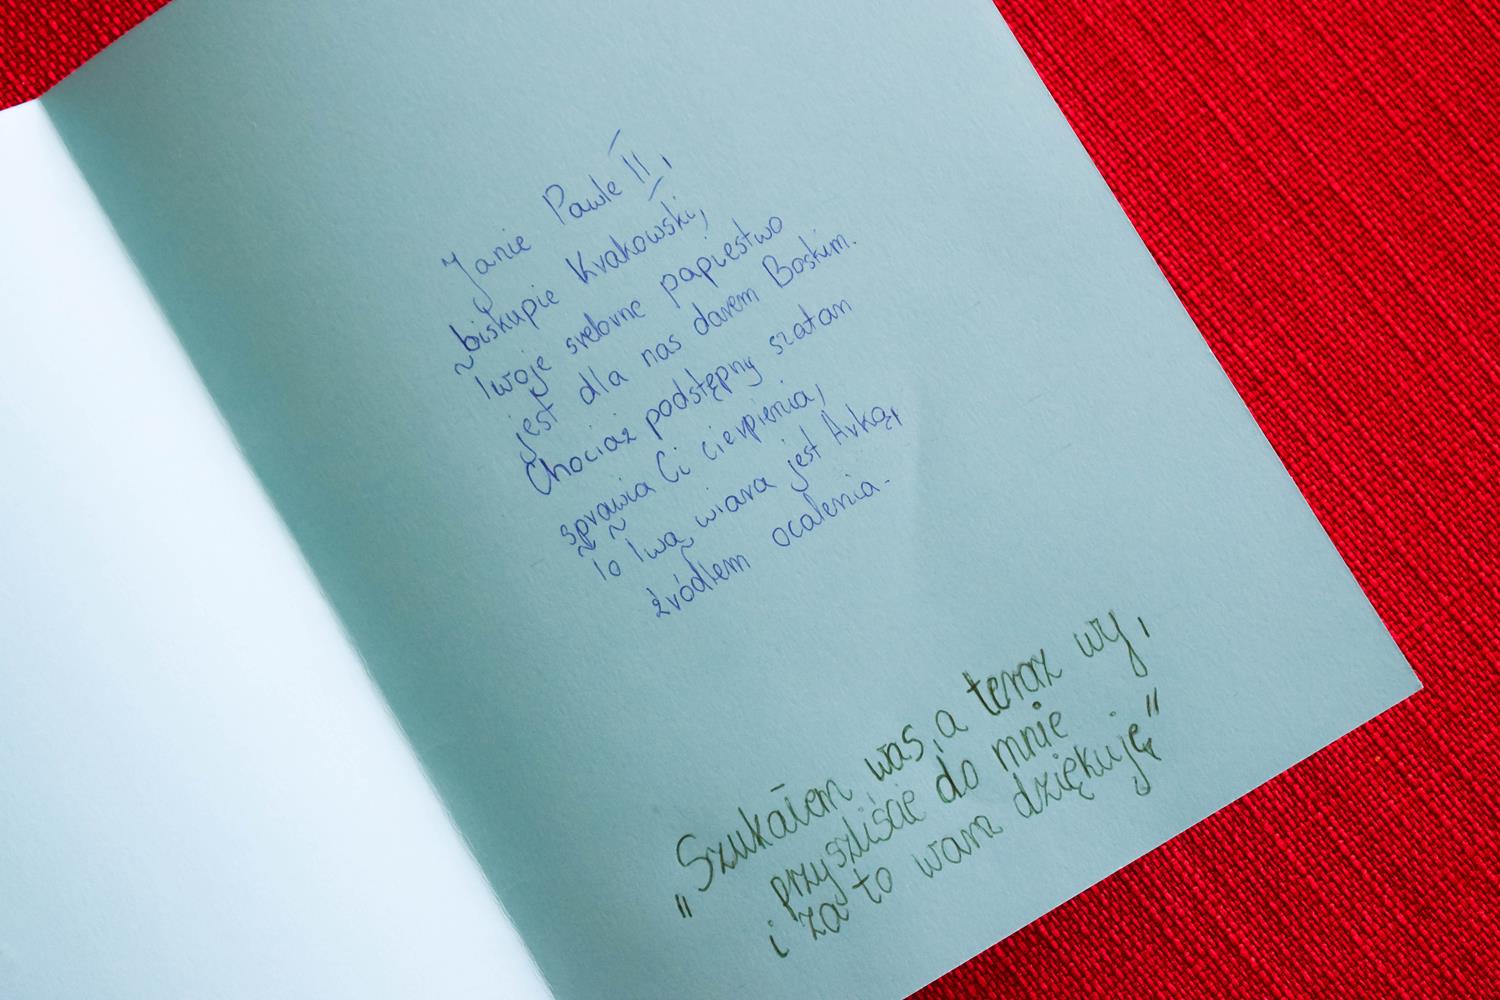 Janie Pawle II,
biskupie Krakowski,
Twoje srebrne papiestwo
jest dla nas darem Boskim.
Chociaż podstępny szatan
sprawia Ci cierpienia,
To Twa wiara jest Arką,
źródłem ocalenia.
„Szukałem was, a teraz wy,
przyszliście do mnie
i za to wam dziękuję"